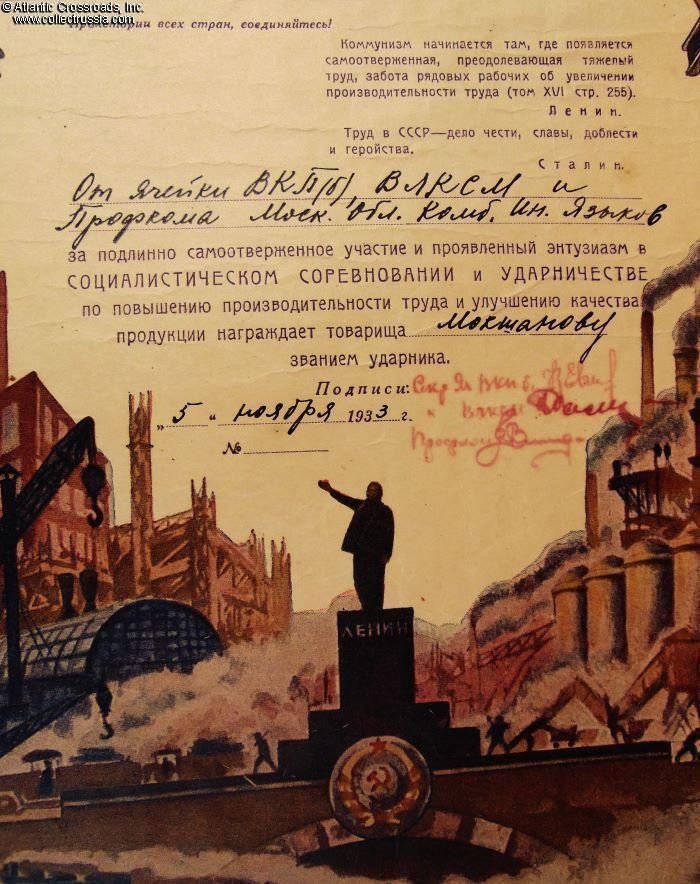 © Atlantic Crossroads, Inc.
www.collectrussia.com
Пролетарии всех стран, соединяйтесь!
Коммунизм начинается там, где появляется
самоотверженная, преодолевающая тяжелый
труд, забота рядовых рабочих об увеличении
производительности труда (том XVI стр. 255).
Ленин.
Труд в СССР—дело чести, славы, доблести
и геройства.
Сталин.
От ячейки ВКП(б), ВЛКСМ и
Профкома Моск. Обл. Комб. Ин. Языков
за подлинно самоотверженное участие и проявленный энтузиазм в
СОЦИАЛИСТИЧЕСКОМ СОРЕВНОВАНИИ и УДАРНИЧЕСТВЕ
по повышению производительности труда и улучшению качества
продукции награждает товарища Мокшанову
званием ударника.
Подписи: Секр Яч ВКП б.
„5" ноября 1933 г. " ВЛКСМ
№ Профком
ЛЕНИН